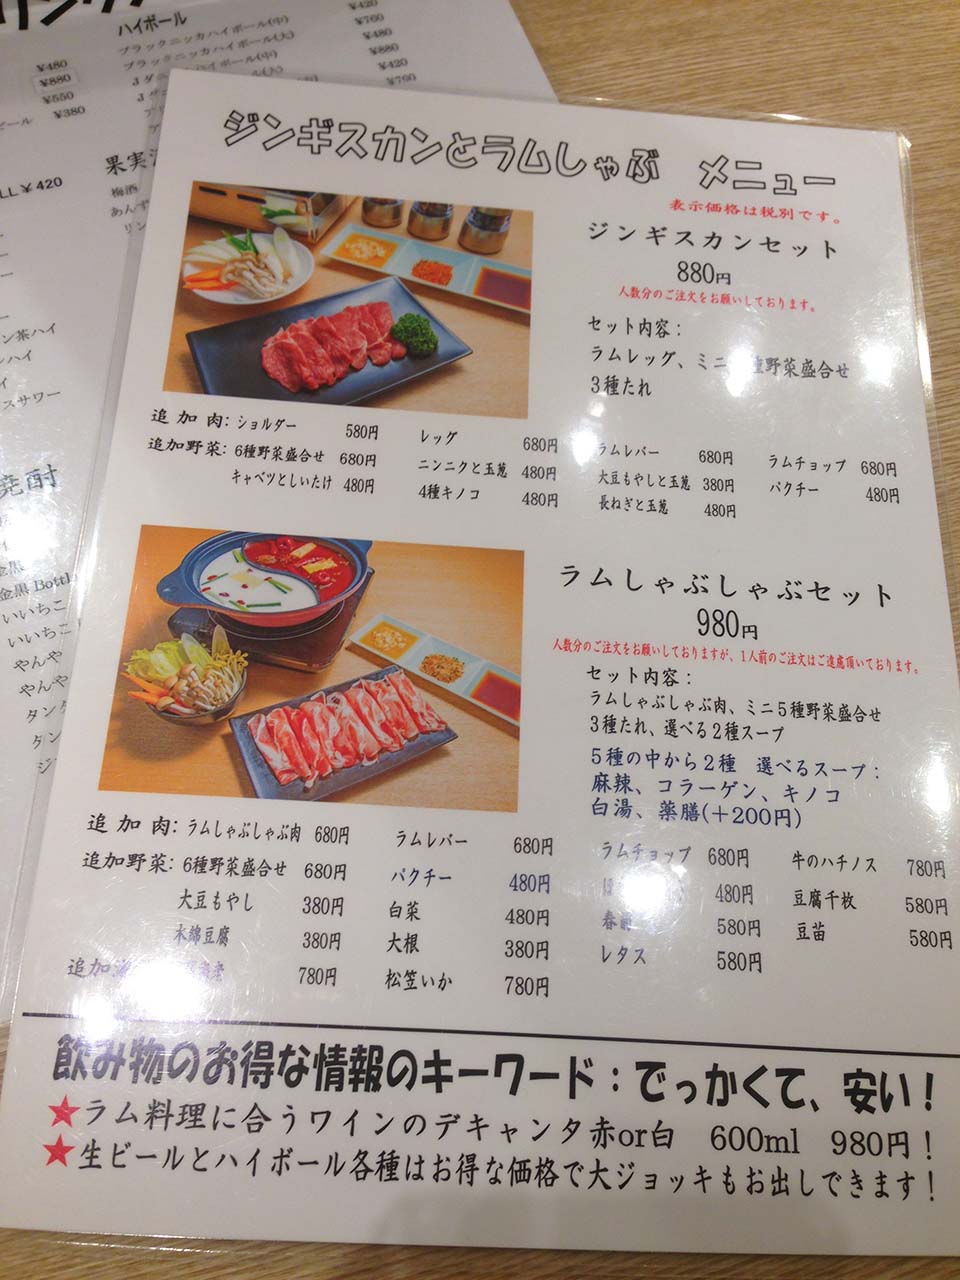 ハイボール
ブラックニッカハイボール(中) ¥480
ブラックニッカハイボール(大) ¥880
¥420
¥760
¥480
¥880
¥550
¥380
¥420
¥760
LL¥420
果実
梅酒
あんず
リン
ン茶ハイ
ハイ
スサワー
焼酎
金黒
金黒 Bottle
いいちこ
いいちこ
やんや
やんや
タンタ
タン
ジンギスカンとラムしゃぶ メニュー
表示価格は税別です。
ジンギスカンセット
880円
人数分のご注文をお願いしております。
セット内容：
ラムレッグ、ミニ 種野菜盛合せ
3種たれ
追加肉：ショルダー 580円 レッグ 680円 ラムレバー 680円 ラムチョップ 680円
追加野菜：6種野菜盛合せ 680円 ニンニクと玉葱 480円 大豆もやしと玉葱 380円 パクチー 480円
キャベツとしいたけ 480円 4種キノコ 480円 長ねぎと玉葱 480円
ラムしゃぶしゃぶセット
980円
人数分のご注文をお願いしておりますが、1人前のご注文はご遠慮頂いております。
セット内容：
ラムしゃぶしゃぶ肉、ミニ5種野菜盛合せ
3種たれ、選べる2種スープ
5種の中から2種 選べるスープ：
麻辣、コラーゲン、キノコ
白湯、薬膳(＋200円)
追加肉：ラムしゃぶしゃぶ肉 680円 ラムレバー 680円 ラムチョップ 680円 牛のハチノス 780円
追加野菜：6種野菜盛合せ 680円 パクチー 480円 480円 豆腐千枚 580円
大豆もやし 380円 白菜 480円 春 580円 豆苗 580円
木綿豆腐 380円 大根 380円 レタス 580円
追加 780円 松笠いか 780円
飲み物のお得な情報のキーワード：でっかくて、安い！
★ラム料理に合うワインのデキャンタ赤or白 600ml 980円！
★生ビールとハイボール各種はお得な価格で大ジョッキもお出しできます！